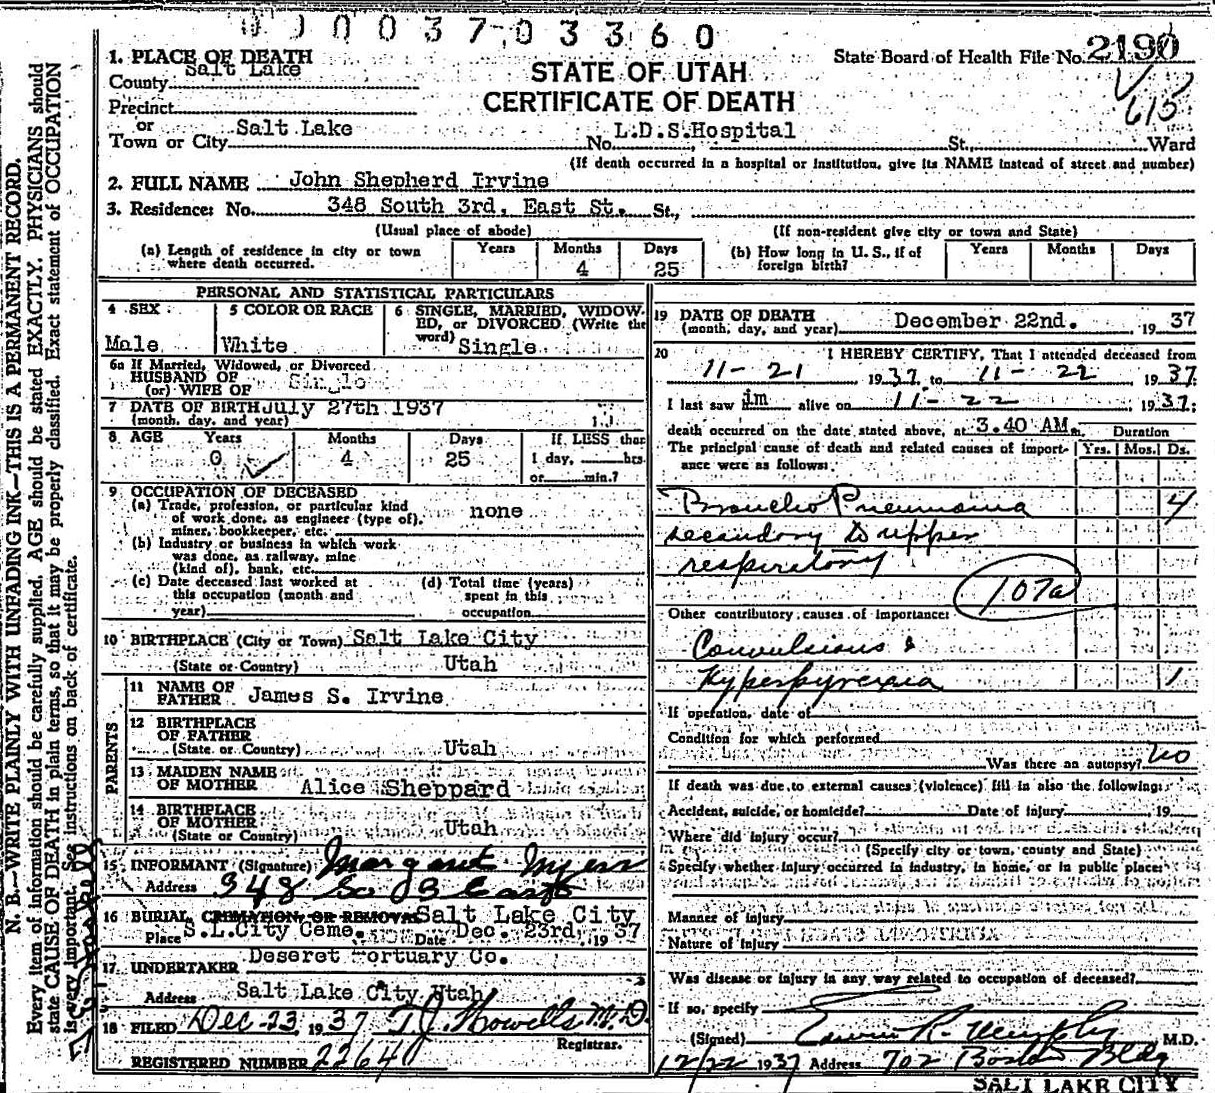 003703360
State Board of Health File No. 2190
1. PLACE OF DEATH
County Salt Lake
STATE OF UTAH
CERTIFICATE OF DEATH
615
Precinct
or
Town or City Salt Lake No. L.D.S.Hospital St., Ward
(If death occurred in a hospital or institution, give its NAME instead of street and number)
2. FULL NAME John Shepherd Irvine
3. Residence: No. 348 South 3rd, East St. St.,
(Usual place of abode) (If non-resident give city or town and State)
(a) Length of residence in city or town where death occurred. Years Months 4 Days 25
(b) How long in U. S., if of foreign birth? Years Months Days
PERSONAL AND STATISTICAL PARTICULARS
4 SEX Male
5 COLOR OR RACE White
6 SINGLE, MARRIED, WIDOWED, or DIVORCED (Write the word) Single
6a If Married, Widowed, or Divorced
HUSBAND OF
(or) WIFE OF Single
7 DATE OF BIRTH July 27th 1937
(month, day, and year)
8 AGE Years 0 Months 4 Days 25 If LESS than
1 day, hrs.
or min.?
9 OCCUPATION OF DECEASED
(a) Trade, profession, or particular kind
of work done, as engineer (type of),
miner, bookkeeper, etc. none
(b) Industry or business in which work
was done, as railway, mine
(kind of), bank, etc.
(c) Date deceased last worked at
this occupation (month and
year)
(d) Total time (years)
spent in this
occupation
10 BIRTHPLACE (City or Town) Salt Lake City
(State or Country) Utah
PARENTS
11 NAME OF FATHER James S. Irvine
12 BIRTHPLACE OF FATHER
(State or Country) Utah
13 MAIDEN NAME OF MOTHER Alice Sheppard
14 BIRTHPLACE OF MOTHER
(State or Country) Utah
15 INFORMANT (Signature) Margaret Myers
Address 348 So 3 East
16 BURIAL, CREMATION, OR REMOVAL Salt Lake City
Place S.L.City Ceme. Date Dec. 23rd, 1937
17. UNDERTAKER Deseret Mortuary Co.
Address Salt Lake City Utah
18 FILED Dec-23, 1937 T.J. Howells M.D.
Registrar.
REGISTERED NUMBER 22640
19 DATE OF DEATH
(month, day, and year) December 22nd. 1937
20 I HEREBY CERTIFY, That I attended deceased from
11-21 1937 to 11-22 1937
I last saw im alive on 11-22 1937;
death occurred on the date stated above, at 3.40 AM.
Duration
Yrs. Mos. Ds.
The principal cause of death and related causes of importance were as follows:
Broncho Pneumonia 4
secondary to upper
respiratory
107a
Other contributory causes of importance:
Convulsions &
Hyperpyrexia 1
If operation, date of
Condition for which performed
Was there an autopsy? no
If death was due to external causes (violence) fill in also the following:
Accident, suicide, or homicide? Date of injury 19
Where did injury occur?
(Specify city or town, county and State)
Specify whether injury occurred in industry, in home, or in public place:
Manner of injury
Nature of injury
Was disease or injury in any way related to occupation of deceased?
If so, specify
(Signed) Edwin R. Murphy M.D.
12/22 1937 Address 702 Boston Bldg
SALT LAKE CITY
N. B.—WRITE PLAINLY WITH UNFADING INK—THIS IS A PERMANENT RECORD.
Every item of information should be carefully supplied. AGE should be stated EXACTLY. PHYSICIANS should
state CAUSE OF DEATH in plain terms, so that it may be properly classified. Exact statement of OCCUPATION
is very important. See instructions on back of certificate.